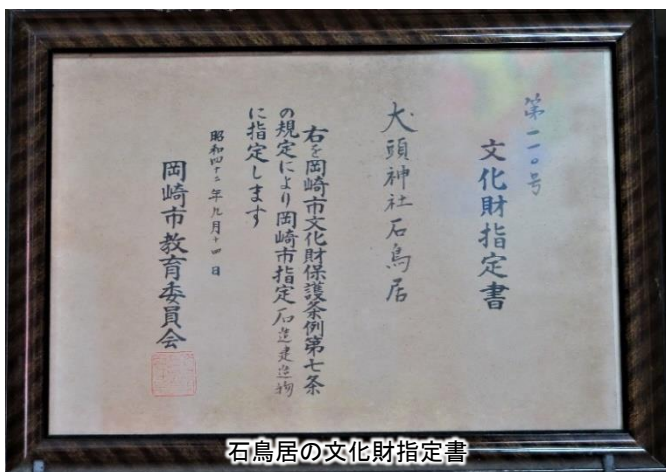 第一一〇号
文化財指定書
犬頭神社石鳥居
右を岡崎市文化財保護条例第七条
の規定により岡崎市指定石造建造物
に指定します
昭和四十二年九月十四日
岡崎市教育委員会
石鳥居の文化財指定書